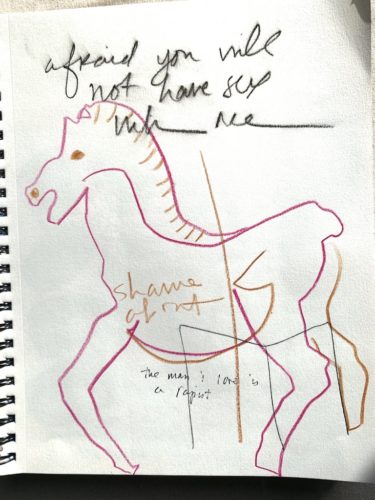 afraid you will
not have sex
with me
shame
the man i love is
a rapist